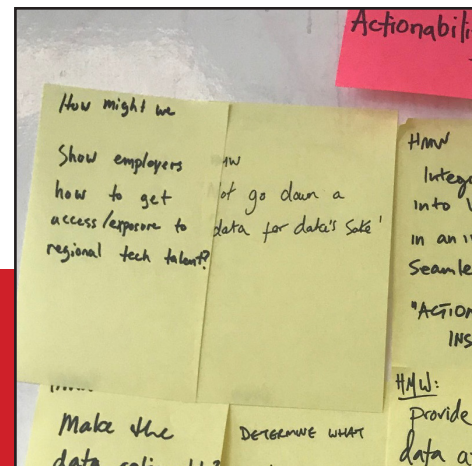 Actionabili
How might we
Show employers
how to get
access/exposure to
regional tech talent?
HMW
Not go down a
data for data's sake'
HMW
Integ
into
in an i
Seamle
"ACTION
INS
HMW:
provide
data a
Make the
data
DETERMINE WHAT